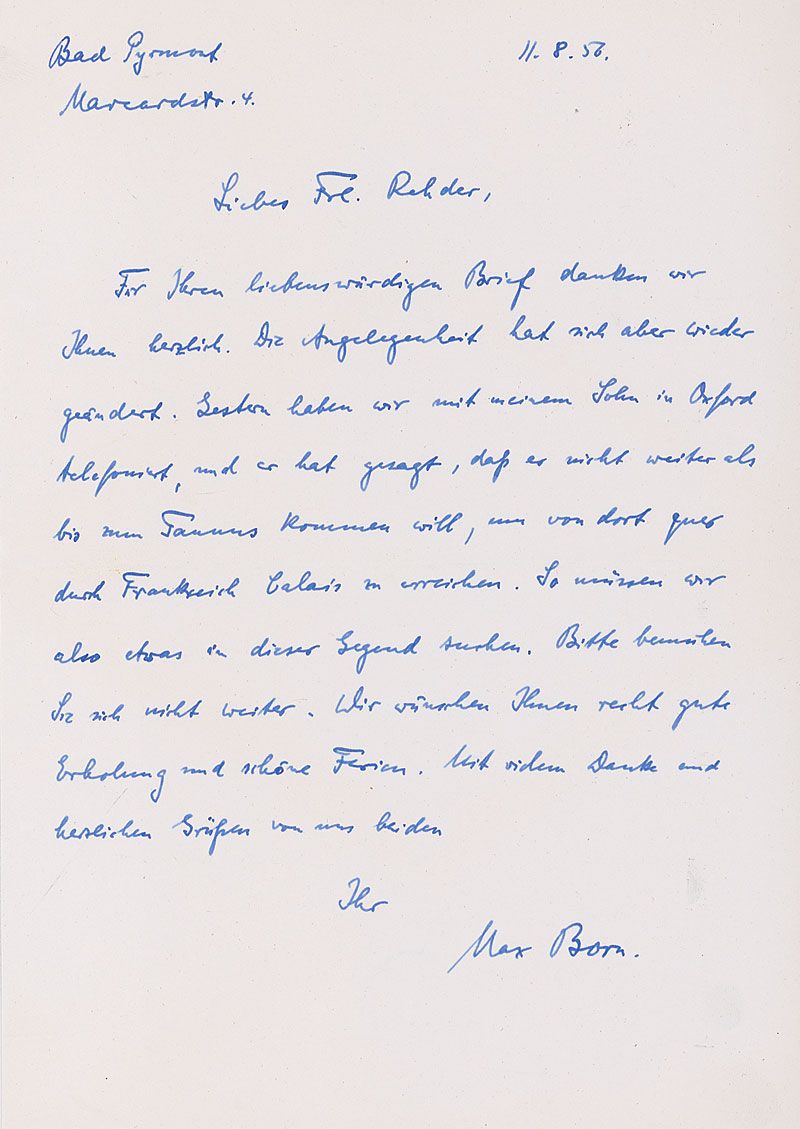 Bad Pyrmont
11. 8. 56.
Marcardstr. 4.
Liebes Frl. Rehder,
Für Ihren liebenswürdigen Brief danken wir
Ihnen herzlich. Die Angelegenheit hat sich aber wieder
geändert. Gestern haben wir mit meinem Sohn in Oxford
telefoniert, und er hat gesagt, daß er nicht weiter als
bis zum Taunus kommen will, um von dort quer
durch Frankreich Calais zu erreichen. So müssen wir
also etwas in dieser Gegend suchen. Bitte bemühen
Sie sich nicht weiter. Wir wünschen Ihnen recht gute
Erholung und schöne Ferien. Mit vielem Danke und
herzlichen Grüßen von uns beiden
Ihr
Max Born.